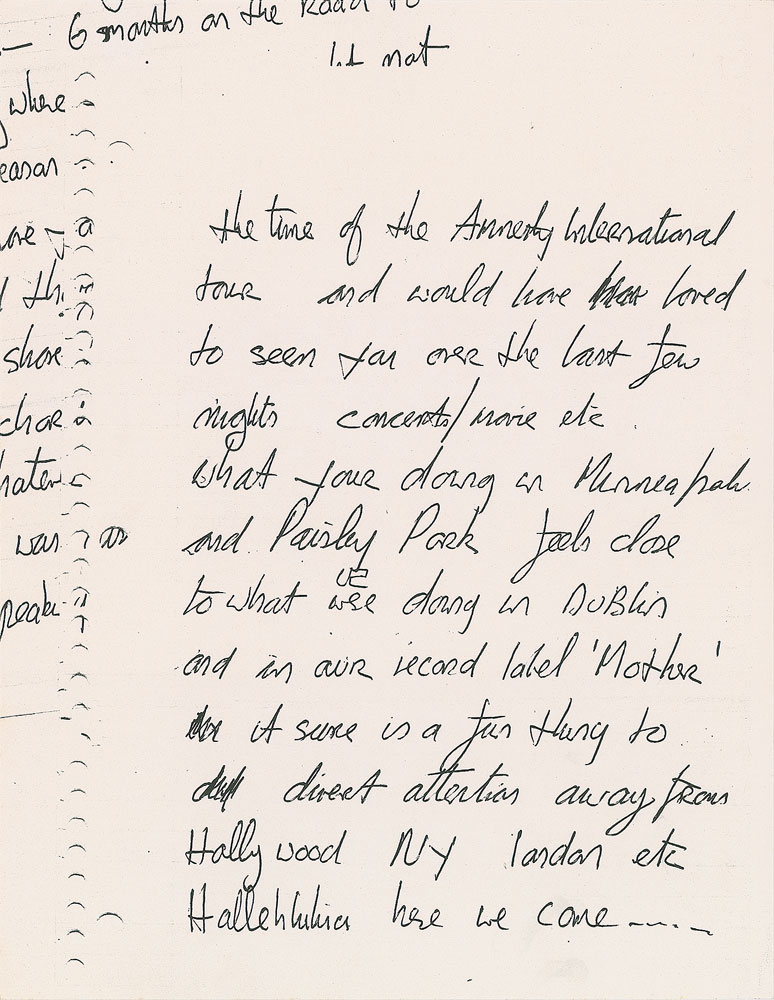 6 months on the Road to
not
where
the time of the Amnesty International
tour and would have loved
to seen you over the last few
nights concerts/movie etc.
what your doing in Minneapolis
and Paisley Park feels close
was
UE
to what wee doing in DUBlin
and in our record label 'Mother'
it sure is a fun thing to
direct attention away from
Hollywood NY London etc
Hallehluhia here we come-----